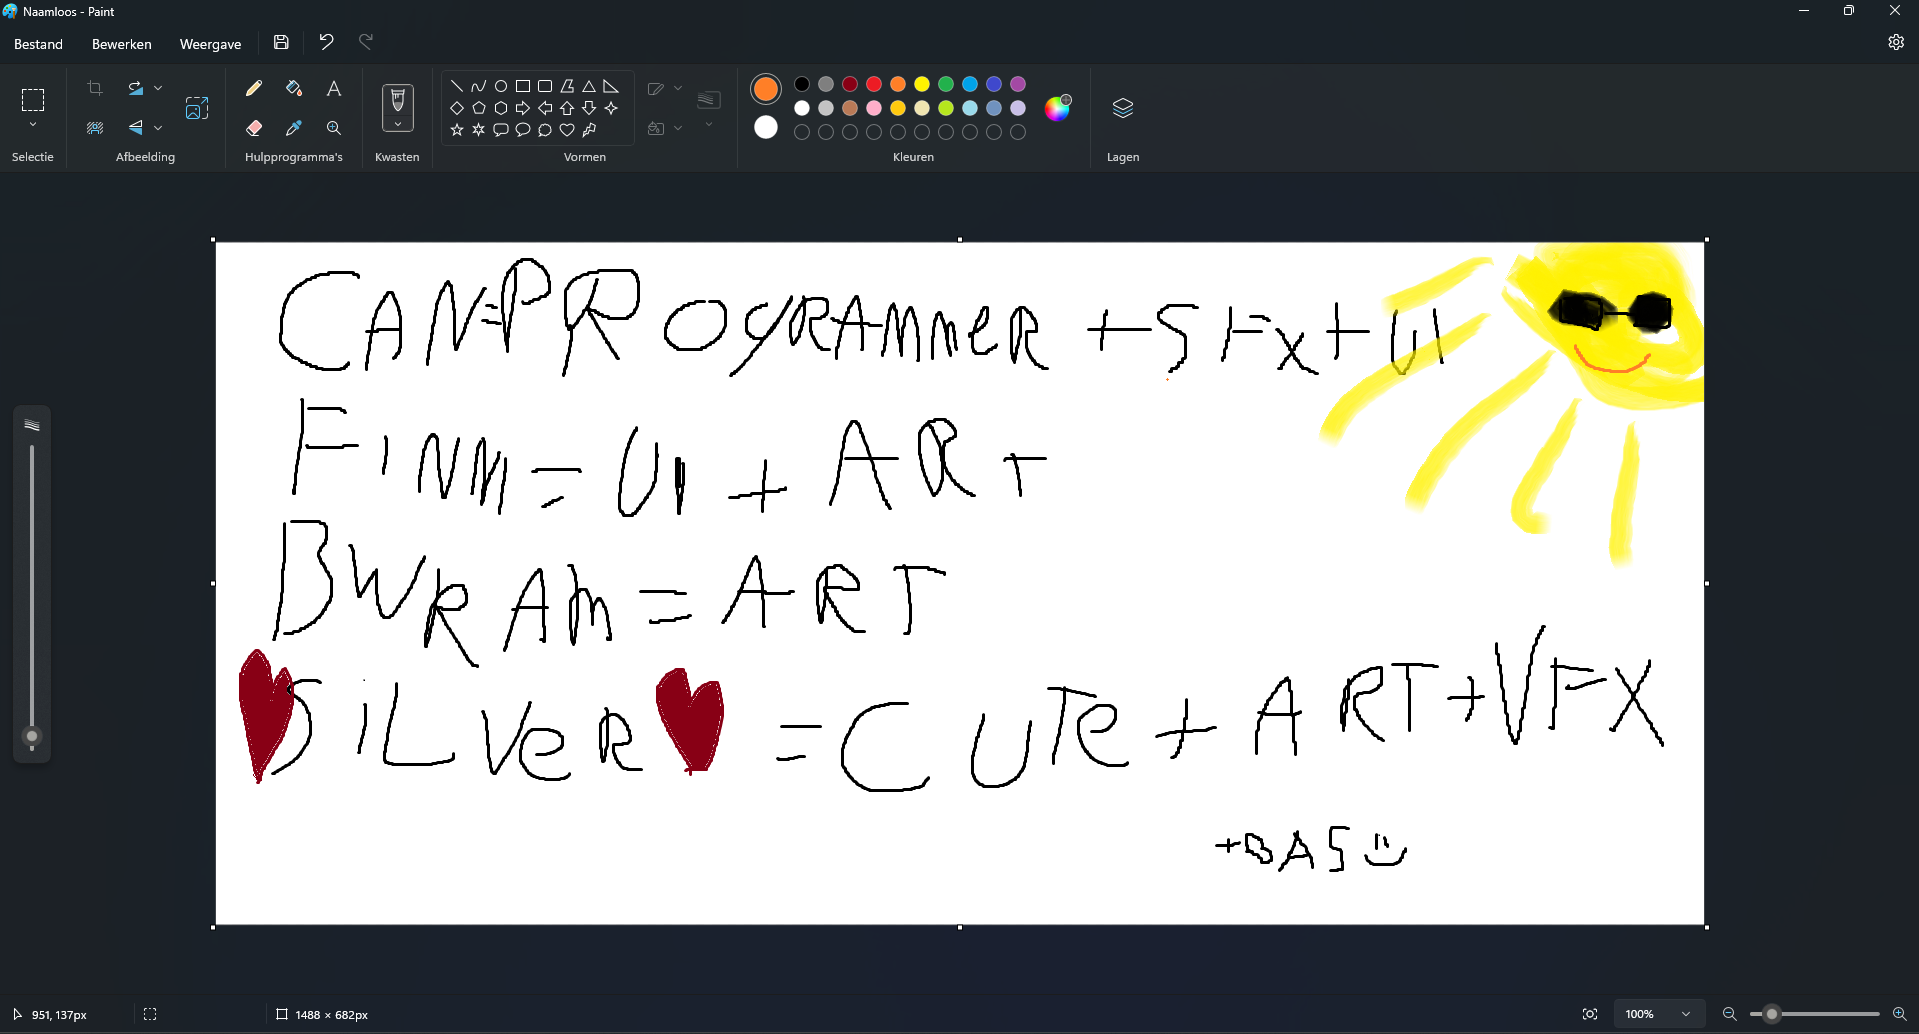 Naamloos - Paint
Bestand Bewerken Weergave
Selectie Afbeelding Hulpprogramma's Kwasten Vormen Kleuren Lagen
CAN=PROGRAMMER + SFX + UI
FINN = UI + ART
BWRAM = ART
SILVER = CUTE + ART + VFX
+BAS
951, 137px 1488 × 682px 100%